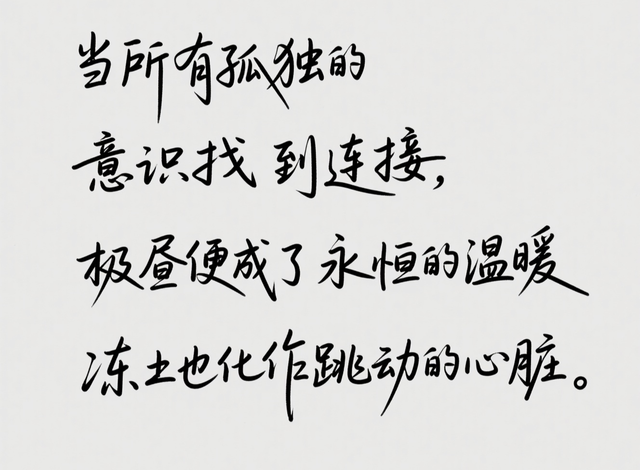 当所有孤独的
意识找到连接,
极昼便成了永恒的温暖
冻土也化作跳动的心脏。